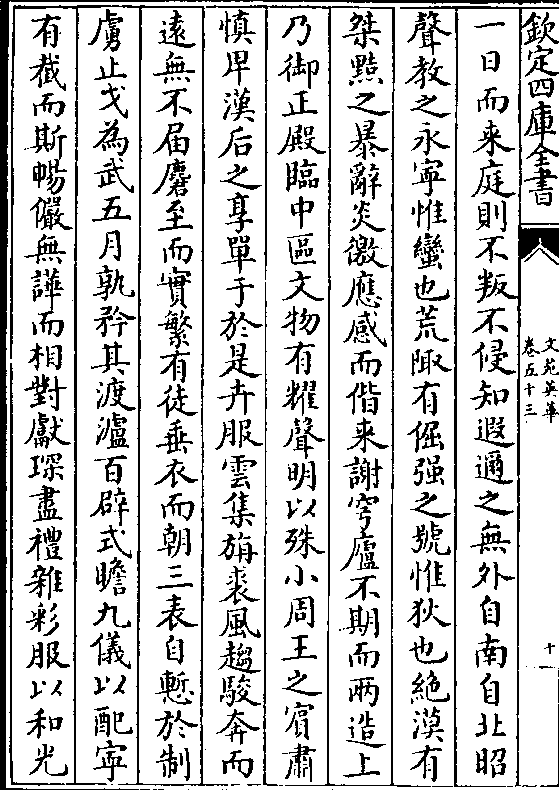 欽定四庫全書
文苑英華
卷五十三
十
一日而来庭則不叛不侵知遐邇之無外自南自北昭
聲教之永寧惟蠻也荒陬有倔强之號惟狄也絶漠有
桀黠之暴辭炎徼應感而偕来謝穹廬不期而兩造上
乃御正殿臨中區文物有耀聲明以殊小周王之賔肅
慎卑漢后之享單于於是卉服雲集旃裘風趨駿奔而
遠無不届麏至而實繁有徒垂衣而朝三表自慙於制
虜止戈為武五月孰矜其渡瀘百辟式瞻九儀以配寜
有截而斯暢儼無譁而相對獻琛盡禮雜彩服以和光